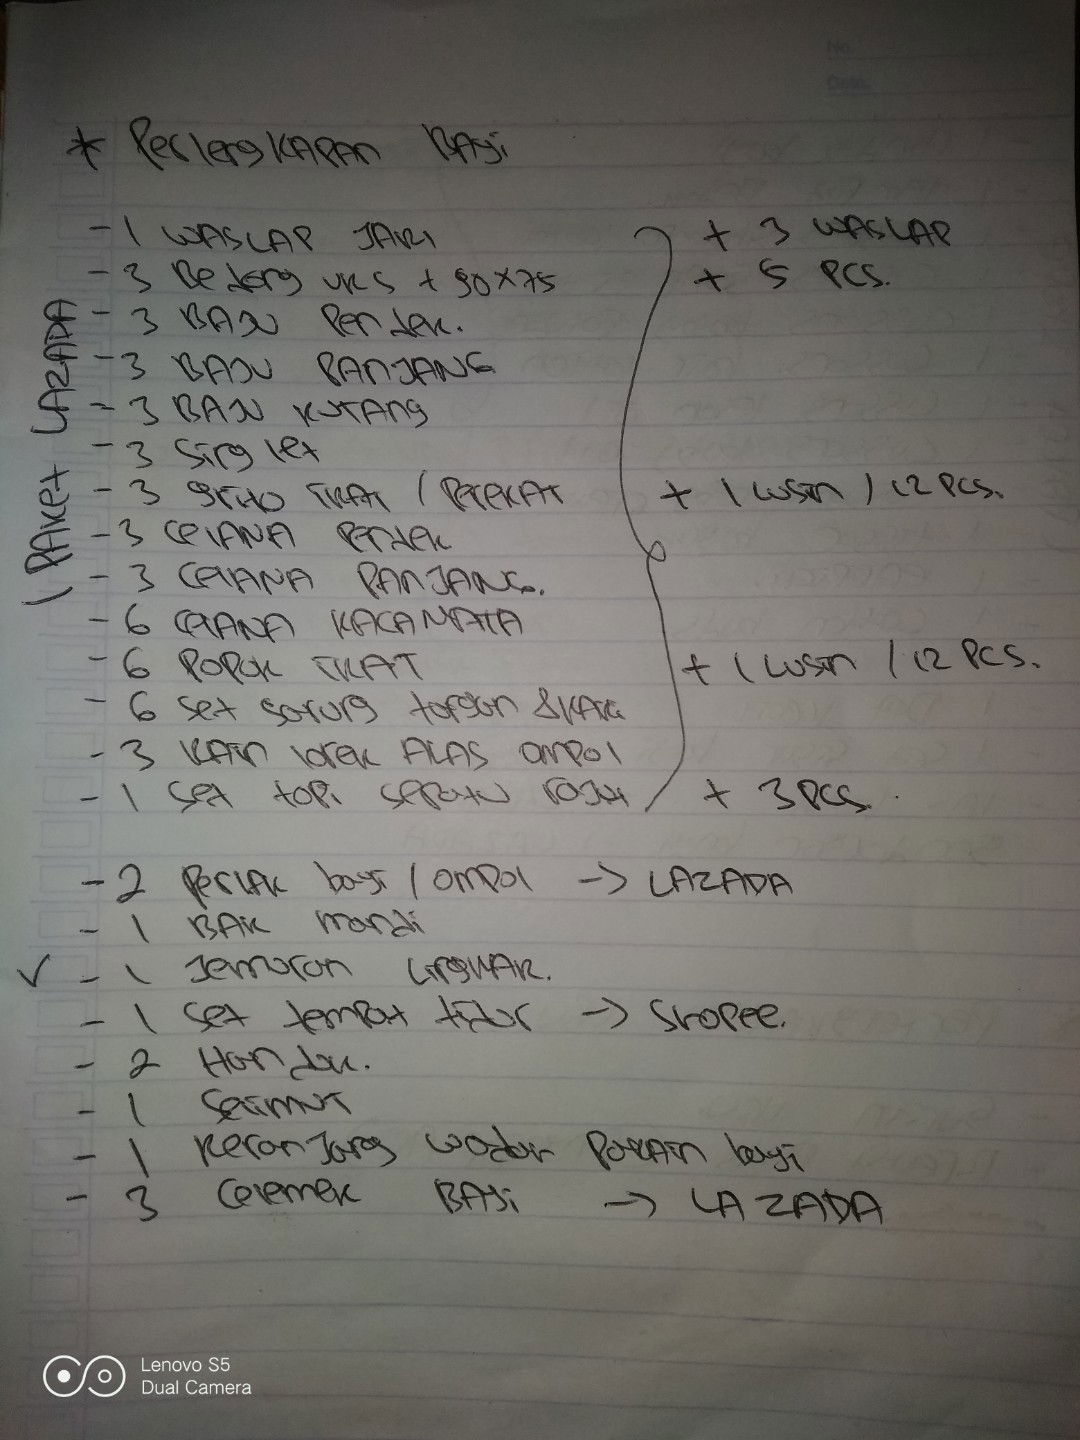 No
Date
* Perlengkapan Bayi
- 1 WASLAP JARI + 3 WASLAP
- 3 Bedong uks + 90x75 + 5 PCS.
- 3 BAJU Pendek.
- 3 BAJU PANJANG
- 3 BAJU KUTANG
- 3 Singlet
- 3 gurito IKAT / PEREKAT + 1 lusin / 12 PCS.
- 3 CELANA Pendek
- 3 CELANA PANJANG.
- 6 CELANA KACAMATA
- 6 POPOK IKAT + 1 lusin / 12 PCS.
- 6 set sarung tangan & KAKI
- 3 KAIN lorek ALAS OMPOL
- 1 set topi sepatu rajut + 3 PCS.
1 PAKET LAZADA
- 2 perlak bayi / OMPOl -> LAZADA
- 1 BAK mandi
✓ - 1 Jemuran LingKAR.
- 1 set tempat tidur -> Shopee.
- 2 Handuk.
- 1 Selimut
- 1 Keranjang wadah PaKAIn bayi
- 3 Celemek BAyi -> LAZADA
Lenovo S5
Dual Camera